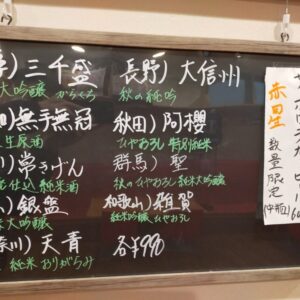 )三千盛
大吟醸 からくち
)無手無冠
生原酒
)常きげん
仕込 純米酒
)銀盤
米大吟醸
奈川)天青
純米 おりがらみ
長野)大信州
秋の純吟
秋田)阿櫻
ひやおろし 特別純米
群馬)聖
秋のひやおろし 純米大吟醸
和歌山)雑賀
純米吟醸 ひやおろし
各¥990
赤星
数量限定
(中瓶)